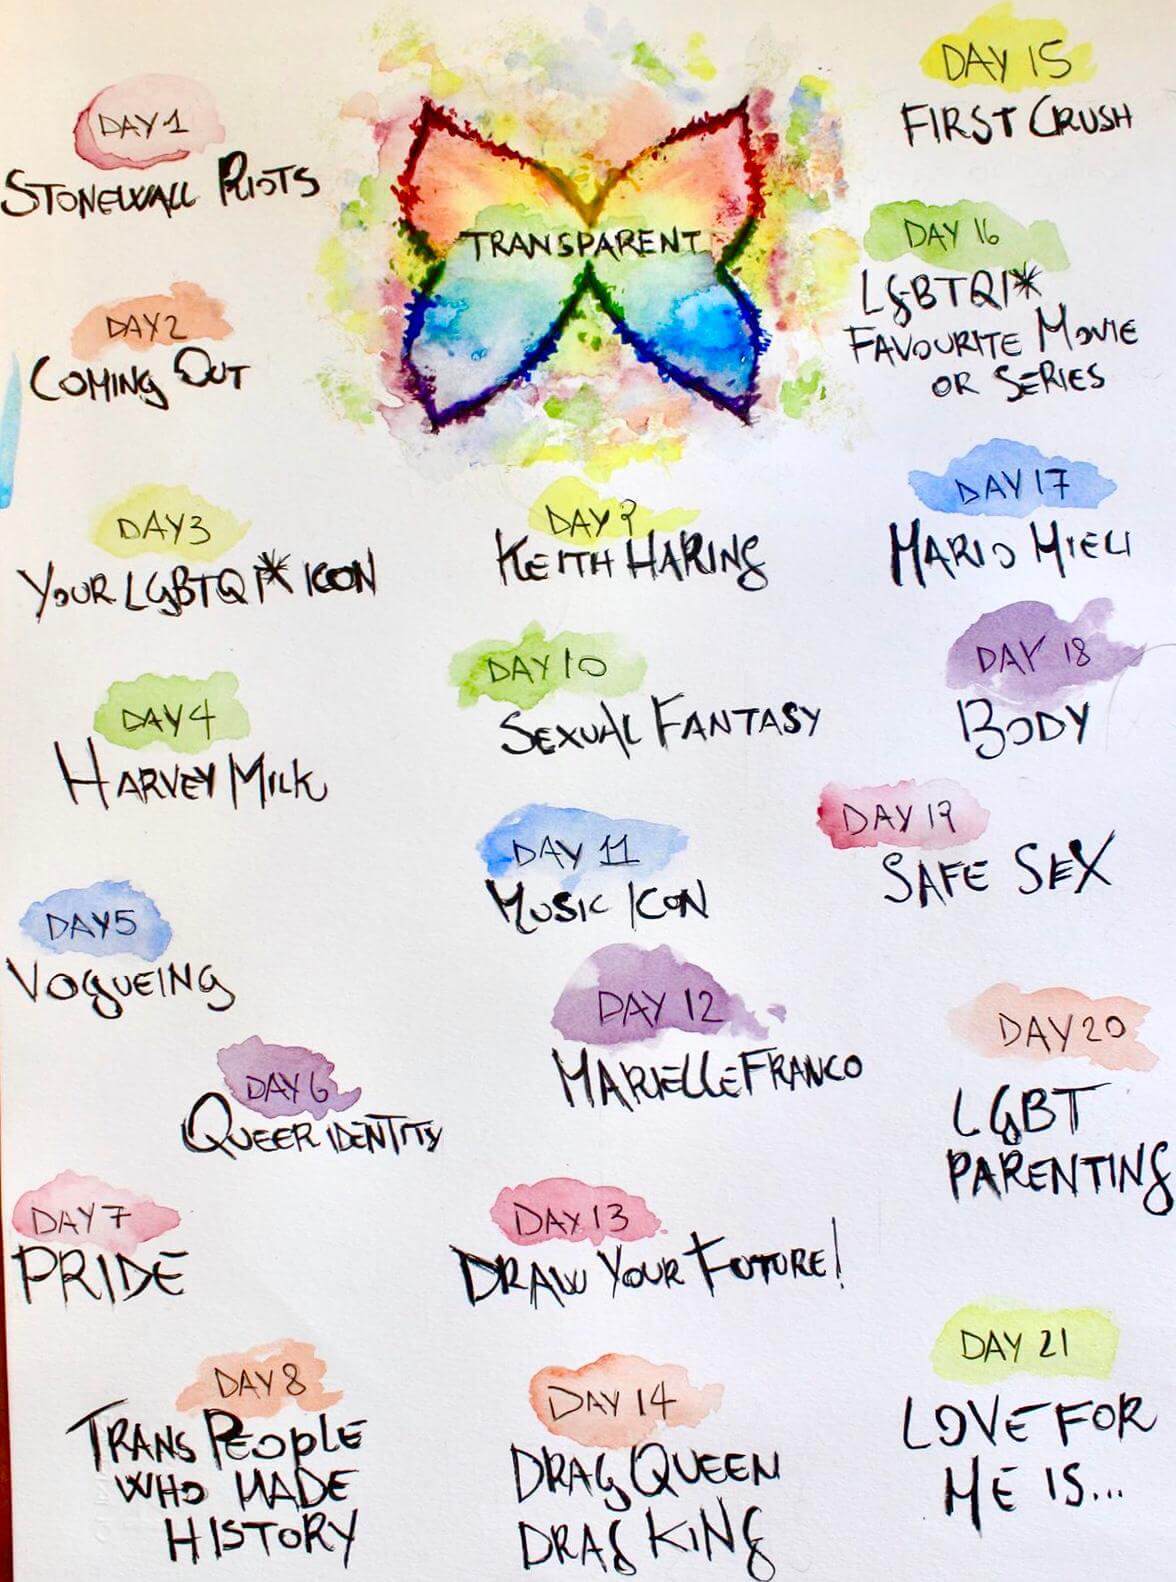 TRANSPARENT
DAY 1
STONEWALL RIOTS
DAY 2
COMING OUT
DAY 3
YOUR LGBTQI* ICON
DAY 4
HARVEY MILK
DAY 5
VOGUEING
DAY 6
QUEER IDENTITY
DAY 7
PRIDE
DAY 8
TRANS PEOPLE
WHO MADE
HISTORY
DAY 9
KEITH HARING
DAY 10
SEXUAL FANTASY
DAY 11
MUSIC ICON
DAY 12
MARIELLE FRANCO
DAY 13
DRAW YOUR FUTURE!
DAY 14
DRAG QUEEN
DRAG KING
DAY 15
FIRST CRUSH
DAY 16
LGBTQI*
FAVOURITE MOVIE
OR SERIES
DAY 17
MARIO MIELI
DAY 18
BODY
DAY 19
SAFE SEX
DAY 20
LGBT
PARENTING
DAY 21
LOVE FOR
ME IS...